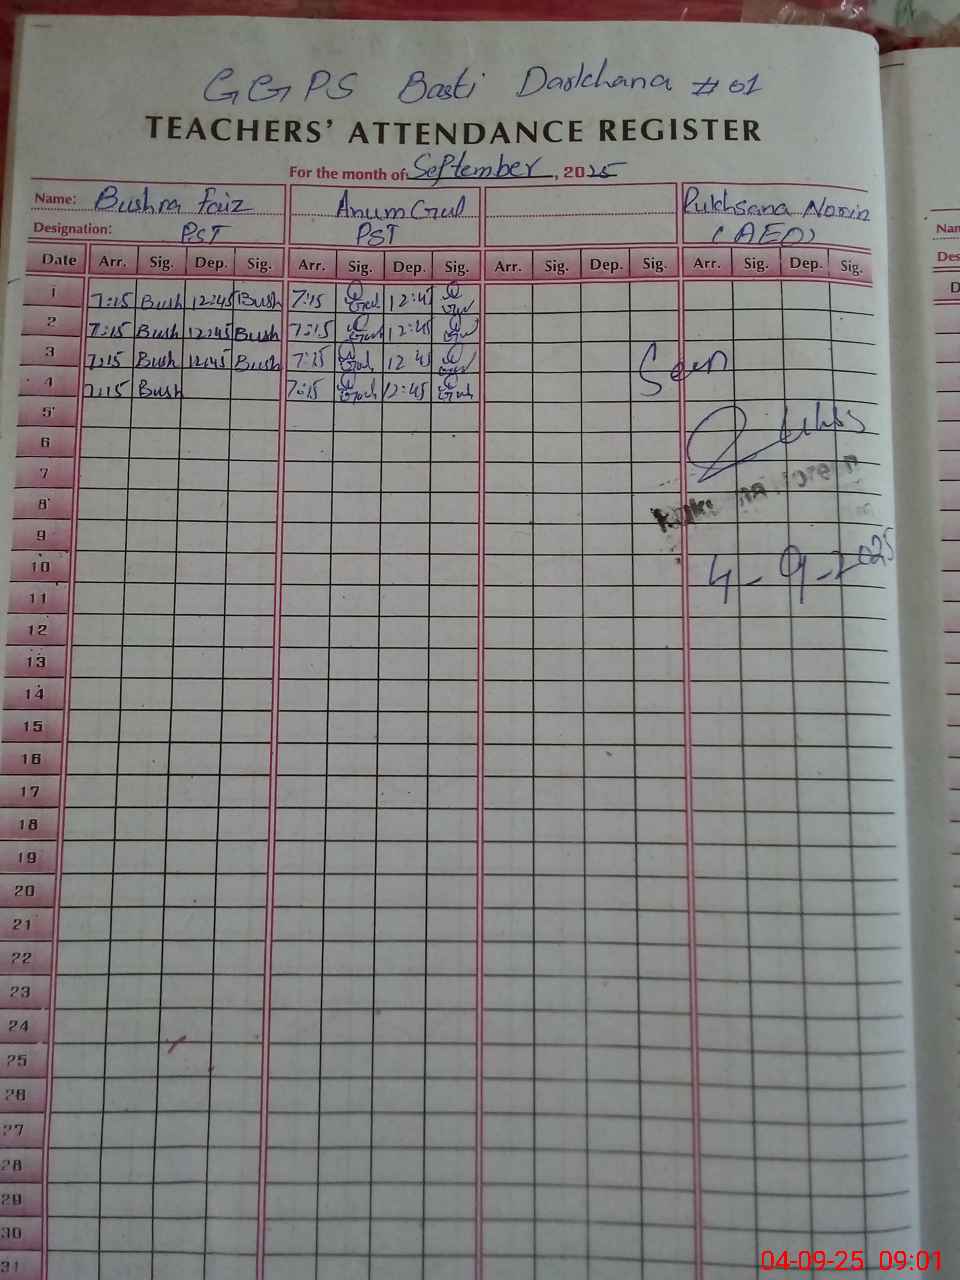 GGPS Basti Darkhana # 01
TEACHERS' ATTENDANCE REGISTER
For the month of September, 2025
Name: Bushra Faiz Anum Gul Rukhsana Norin
Designation: PST PST (AEO)
Date Arr. Sig. Dep. Sig. Arr. Sig. Dep. Sig. Arr. Sig. Dep. Sig. Arr. Sig. Dep. Sig.
1 7:15 Bush 12:45 Bush 7:15 Gul 12:45 Gul
2 7:15 Bush 12:45 Bush 7:15 Gul 12:45
3 7:15 Bush 12:45 Bush 7:15 Gul 12:45 Gul
4 7:15 Bush 7:15 Gul 12:45 Gul
Seen
5
6
7
8
9
10
4-9-2025
11
12
13
14
15
16
17
18
19
20
21
22
23
24
25
26
27
28
29
30
31
Nam
Des
D
04-09-25 09:01